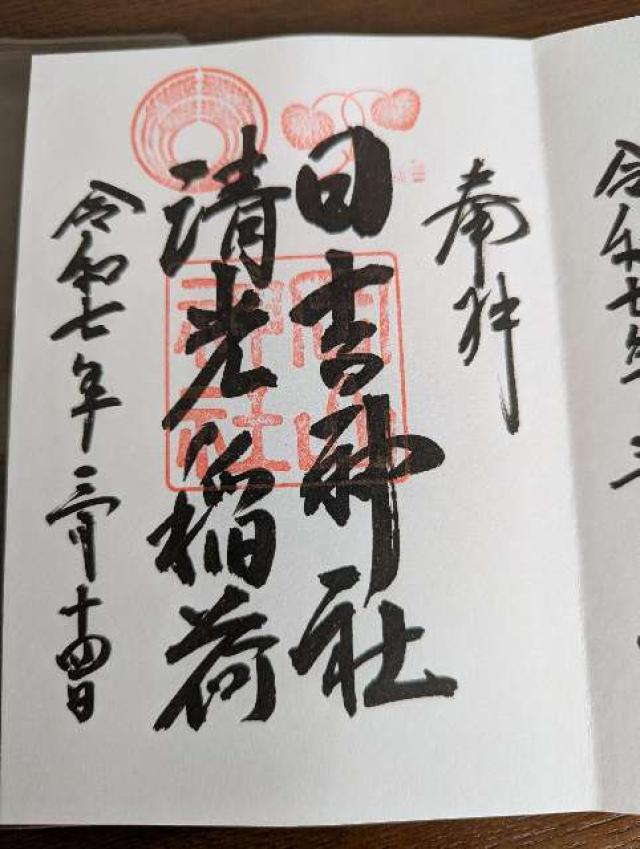 奉拝
日吉神社
清光稲荷
令和七年三月十四日
向山
神社
令和七年 三